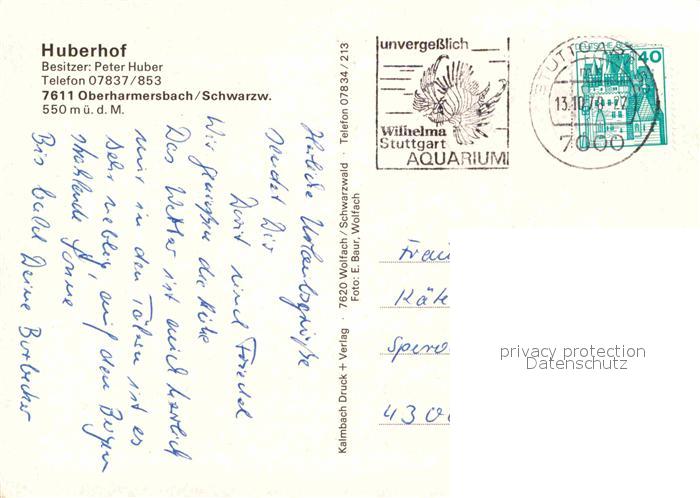 Huberhof
Besitzer: Peter Huber
Telefon 07837/853
7611 Oberharmersbach/Schwarzw.
550 m ü. d. M.
Herzliche Urlaubsgrüße
sendet Dir
Dorit und Friedel
Wir genießen die Ruhe
Das Wetter ist auch herrlich
nur in den Tälern ist es
sehr neblig, auf den Bergen
strahlende Sonne
Bis bald Deine Borbecker
Kalmbach Druck + Verlag · 7620 Wolfach/Schwarzwald · Telefon 07834/213
Foto: E. Baur, Wolfach
unvergeßlich
Wilhelma
Stuttgart
AQUARIUM
STUTTGART
13.10.
7000
40
Frau
Käte
Spero
4300
privacy protection
Datenschutz